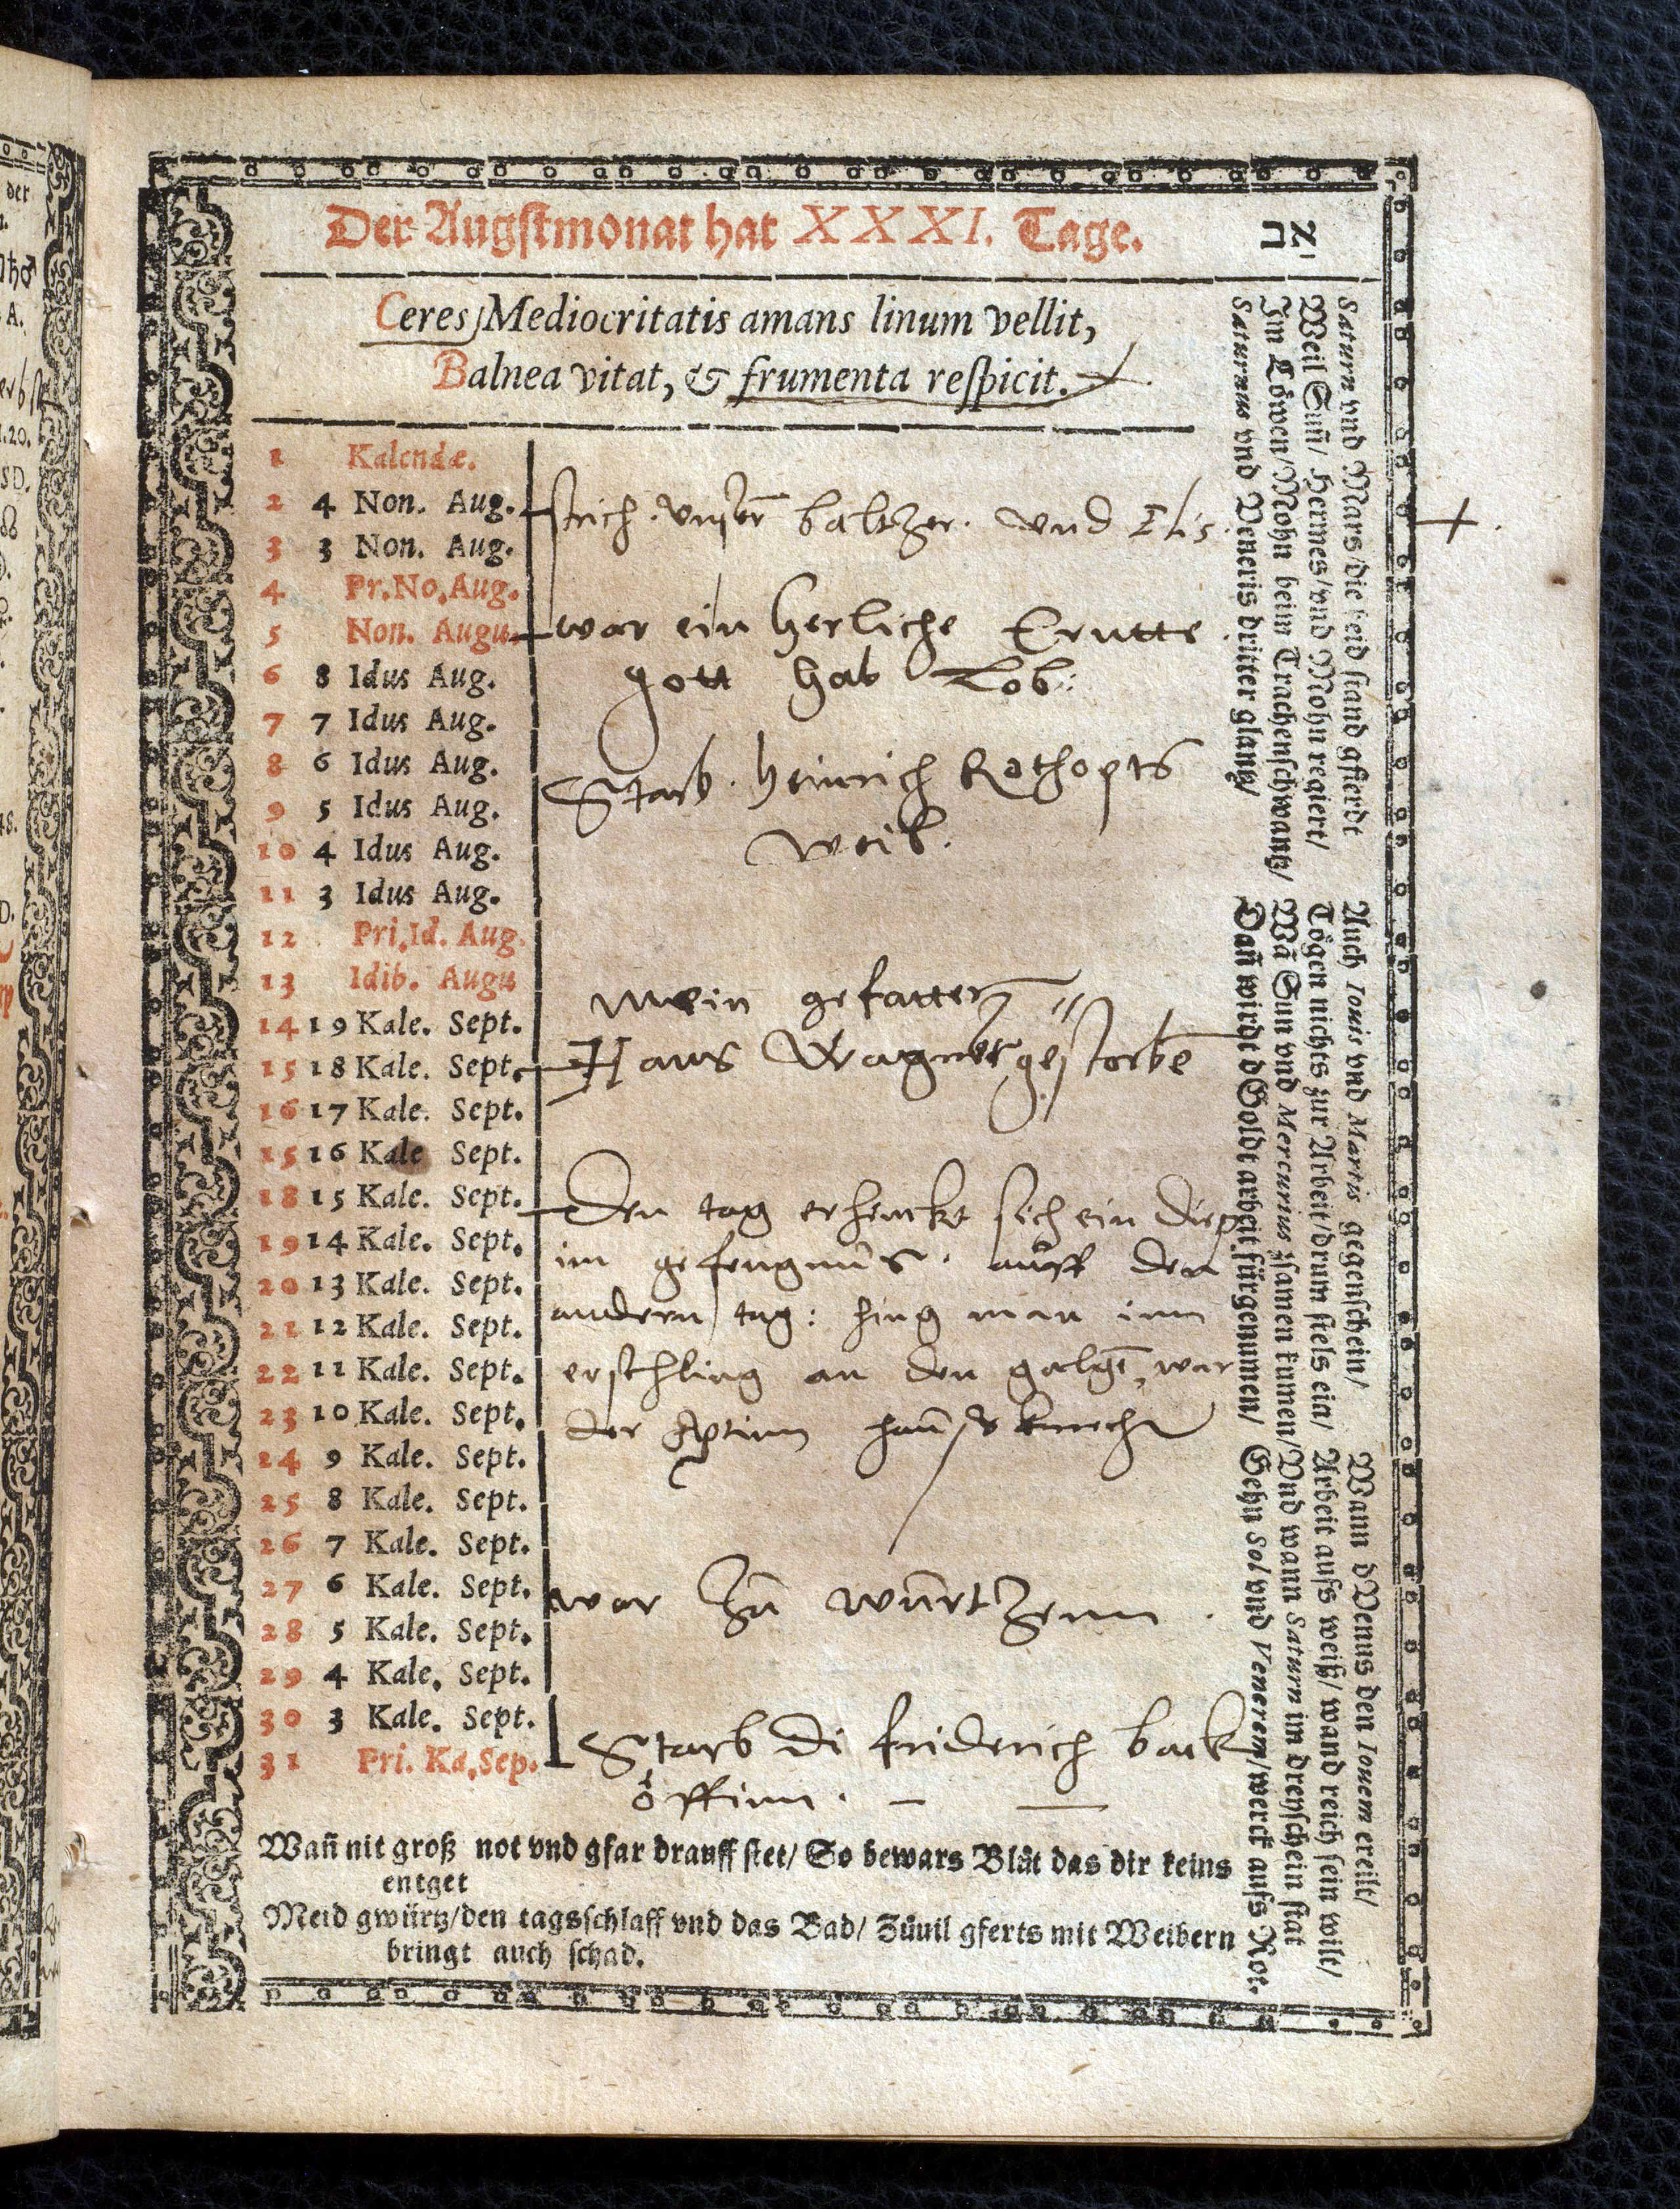 Der Augstmonat hat XXXI. Tage.
אב
Ceres, Mediocritatis amans linum vellit,
Balnea vitat, & frumenta reſpicit.
1 Kalendæ.
2 4 Non. Aug.
strich. vnser baltzer. vnd Elis.
3 3 Non. Aug.
4 Pr. No. Aug.
5 Non. Augu.
war ein herliche Erntte
6 8 Idus Aug.
gott hab Lob:
7 7 Idus Aug.
8 6 Idus Aug.
Starb. heinrich Rothopts
9 5 Idus Aug.
10 4 Idus Aug.
weib.
11 3 Idus Aug.
12 Pri. Id. Aug.
13 Idib. Augu
mein gefatter
14 19 Kale. Sept.
15 18 Kale. Sept.
Hans Wagner gestorbē
16 17 Kale. Sept.
15 16 Kale Sept.
18 15 Kale. Sept.
Den tag erhenckt sich ein diep
19 14 Kale. Sept.
im gefengnus. auff den
20 13 Kale. Sept.
21 12 Kale. Sept.
andern tag: hing man inn
22 11 Kale. Sept.
erschling an den galgē, war
23 10 Kale. Sept.
der Aptinn hauſsknecht
24 9 Kale. Sept.
25 8 Kale. Sept.
26 7 Kale. Sept.
27 6 Kale. Sept.
war zu wurtzenn.
28 5 Kale. Sept.
29 4 Kale. Sept.
30 3 Kale. Sept.
31 Pri. Ka. Sep.
Starb di friderich back
öffinn.
Wañ nit groß not vnd gfar drauff ſtet/ So bewars Blůt das dir keins
entget
Meid gwürtz/den tagsſchlaff vnd das Bad/ Zůuil gferts mit Weibern
bringt auch ſchad.
Saturn vnd Mars die beid ſtand gſterdt
Weil Suñ/ Hermes/vnd Mohn regiert/
Im Löwen/Mohn beim Trachenſchwantz/
Saturnus vnd Veneris dritter glantz/
Auch Iouis vnd Martis gegenſchein/
Tögen nichts zur Arbeit/drum ſtels ein/
Wã Sun vnd Mercurius zſamen kumen/
Dañ wirdt d Goldt arbeit fürgenumen/
Wann d Venus den Iouem ereilt/
Arbeit auſs weiß/ wand reich ſein wilt/
Vnd wann Saturn im dreyſchein ſtat
Sehn Sol vnd Venerem/werck auſs Rot.